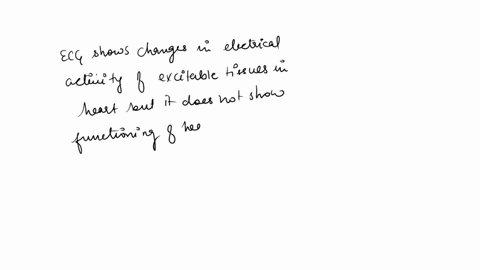 ECG shows changes in electrical
activity of excitable tissues in
heart but it does not show
functioning of hea